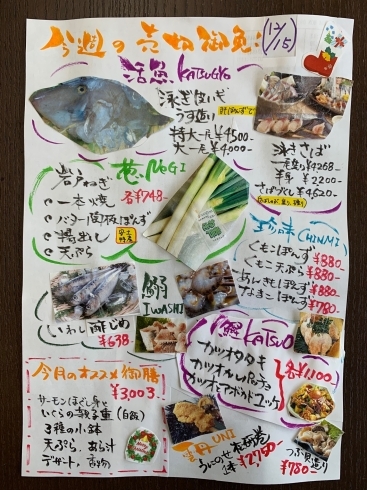 今週の売切御免!
(12/15)
活魚 KATSUGYO
泳ぎはげ
うす造り
特大一尾 ¥4500
大一尾 ¥4,000
泳ぎさば
一尾造り ¥4268
半身 ¥2200
さばづくし ¥4,520
岩戸ねぎ
葱 NEGI
各¥748
一本焼
バター醤油ぽんず
天ぷら
珍味 CHINMI
くもこぽんず ¥880
くもこ天ぷら ¥880
あんきもぽんず ¥880
なまこぽんず ¥780
鰯
IWASHI
いわし酢じめ
¥638
鰹 KATSUO
カツオタタキ
カツオカルパッチョ
カツオとアボカドユッケ
各¥1100
今月のオススメ御膳
¥3,003
サーモンほぐし身と
いくらの親子重(白飯)
3種の小鉢
天ぷら、あら汁
デザート、香物
雲丹 UNI
¥2,750
つぶ貝造り
¥780